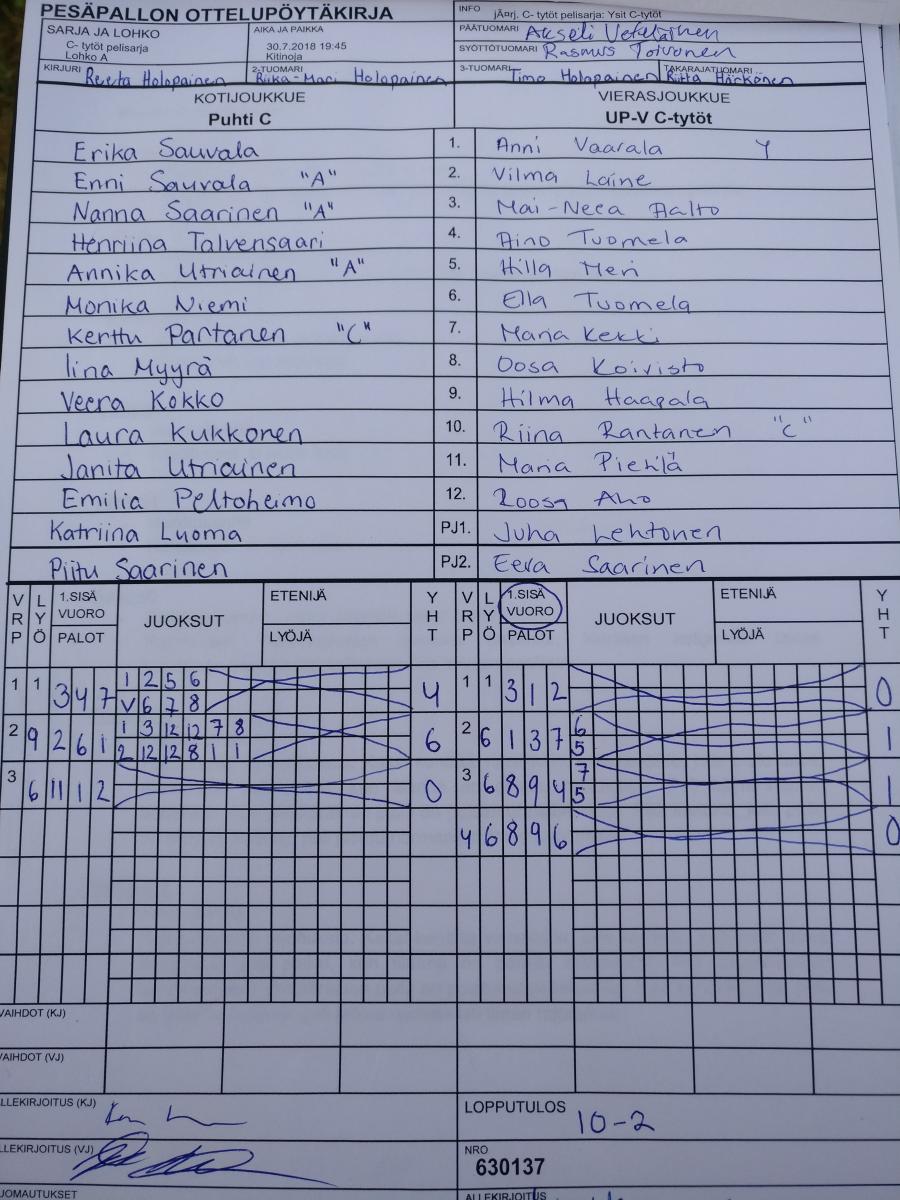 PESÄPALLON OTTELUPÖYTÄKIRJA
INFO jÃ¤rj. C- tytöt pelisarja: Ysit C-tytöt
SARJA JA LOHKO
C- tytöt pelisarja
Lohko A
AIKA JA PAIKKA
30.7.2018 19:45
Kitinoja
PÄÄTUOMARI Akseli
SYÖTTÖTUOMARI Rasmus Toivonen
KIRJURI Reeta Holopainen
2-TUOMARI Riika-Mari Holopainen
3-TUOMARI Timo Holopainen
TAKARAJATUOMARI Riitta Härkönen
KOTIJOUKKUE VIERASJOUKKUE
Puhti C UP-V C-tytöt
Erika Sauvala 1. Anni Vaarala Y
Enni Sauvala "A" 2. Vilma Laine
Nanna Saarinen "A" 3. Mai-Neea Aalto
Henriina Talvensaari 4. Aino Tuomela
Annika Utriainen "A" 5. Hilla Meri
Monika Niemi 6. Ella Tuomela
Kerttu Partanen "C" 7. Maria Kekki
Iina Myyrä 8. Oosa Koivisto
Veera Kokko 9. Hilma Haapala
Laura Kukkonen 10. Riina Rantanen "C"
Janita Utriainen 11. Maria Pienlä
Emilia Peltoheimo 12. Roosa Aho
Katriina Luoma PJ1. Juha Lehtonen
Piitu Saarinen PJ2. Eeva Saarinen
VRP LYÖ 1.SISÄ VUORO PALOT JUOKSUT ETENIJÄ LYÖJÄ YHT VRP LYÖ 1.SISÄ VUORO PALOT JUOKSUT ETENIJÄ LYÖJÄ YHT
1 1 3 4 7 1 2 5 6 4 1 1 3 1 2 0
V 6 7 8
2 9 2 6 1 1 3 12 12 7 8 6 2 6 1 3 7 6 1
2 12 12 8 1 1 5
3 6 11 1 2 0 3 6 8 9 4 7 1
5
4 6 8 9 6 0
VAIHDOT (KJ)
VAIHDOT (VJ)
LLEKIRJOITUS (KJ)
LOPPUTULOS 10-2
LLEKIRJOITUS (VJ)
NRO
630137
UOMAUTUKSET
ALLEKIRJOITUS